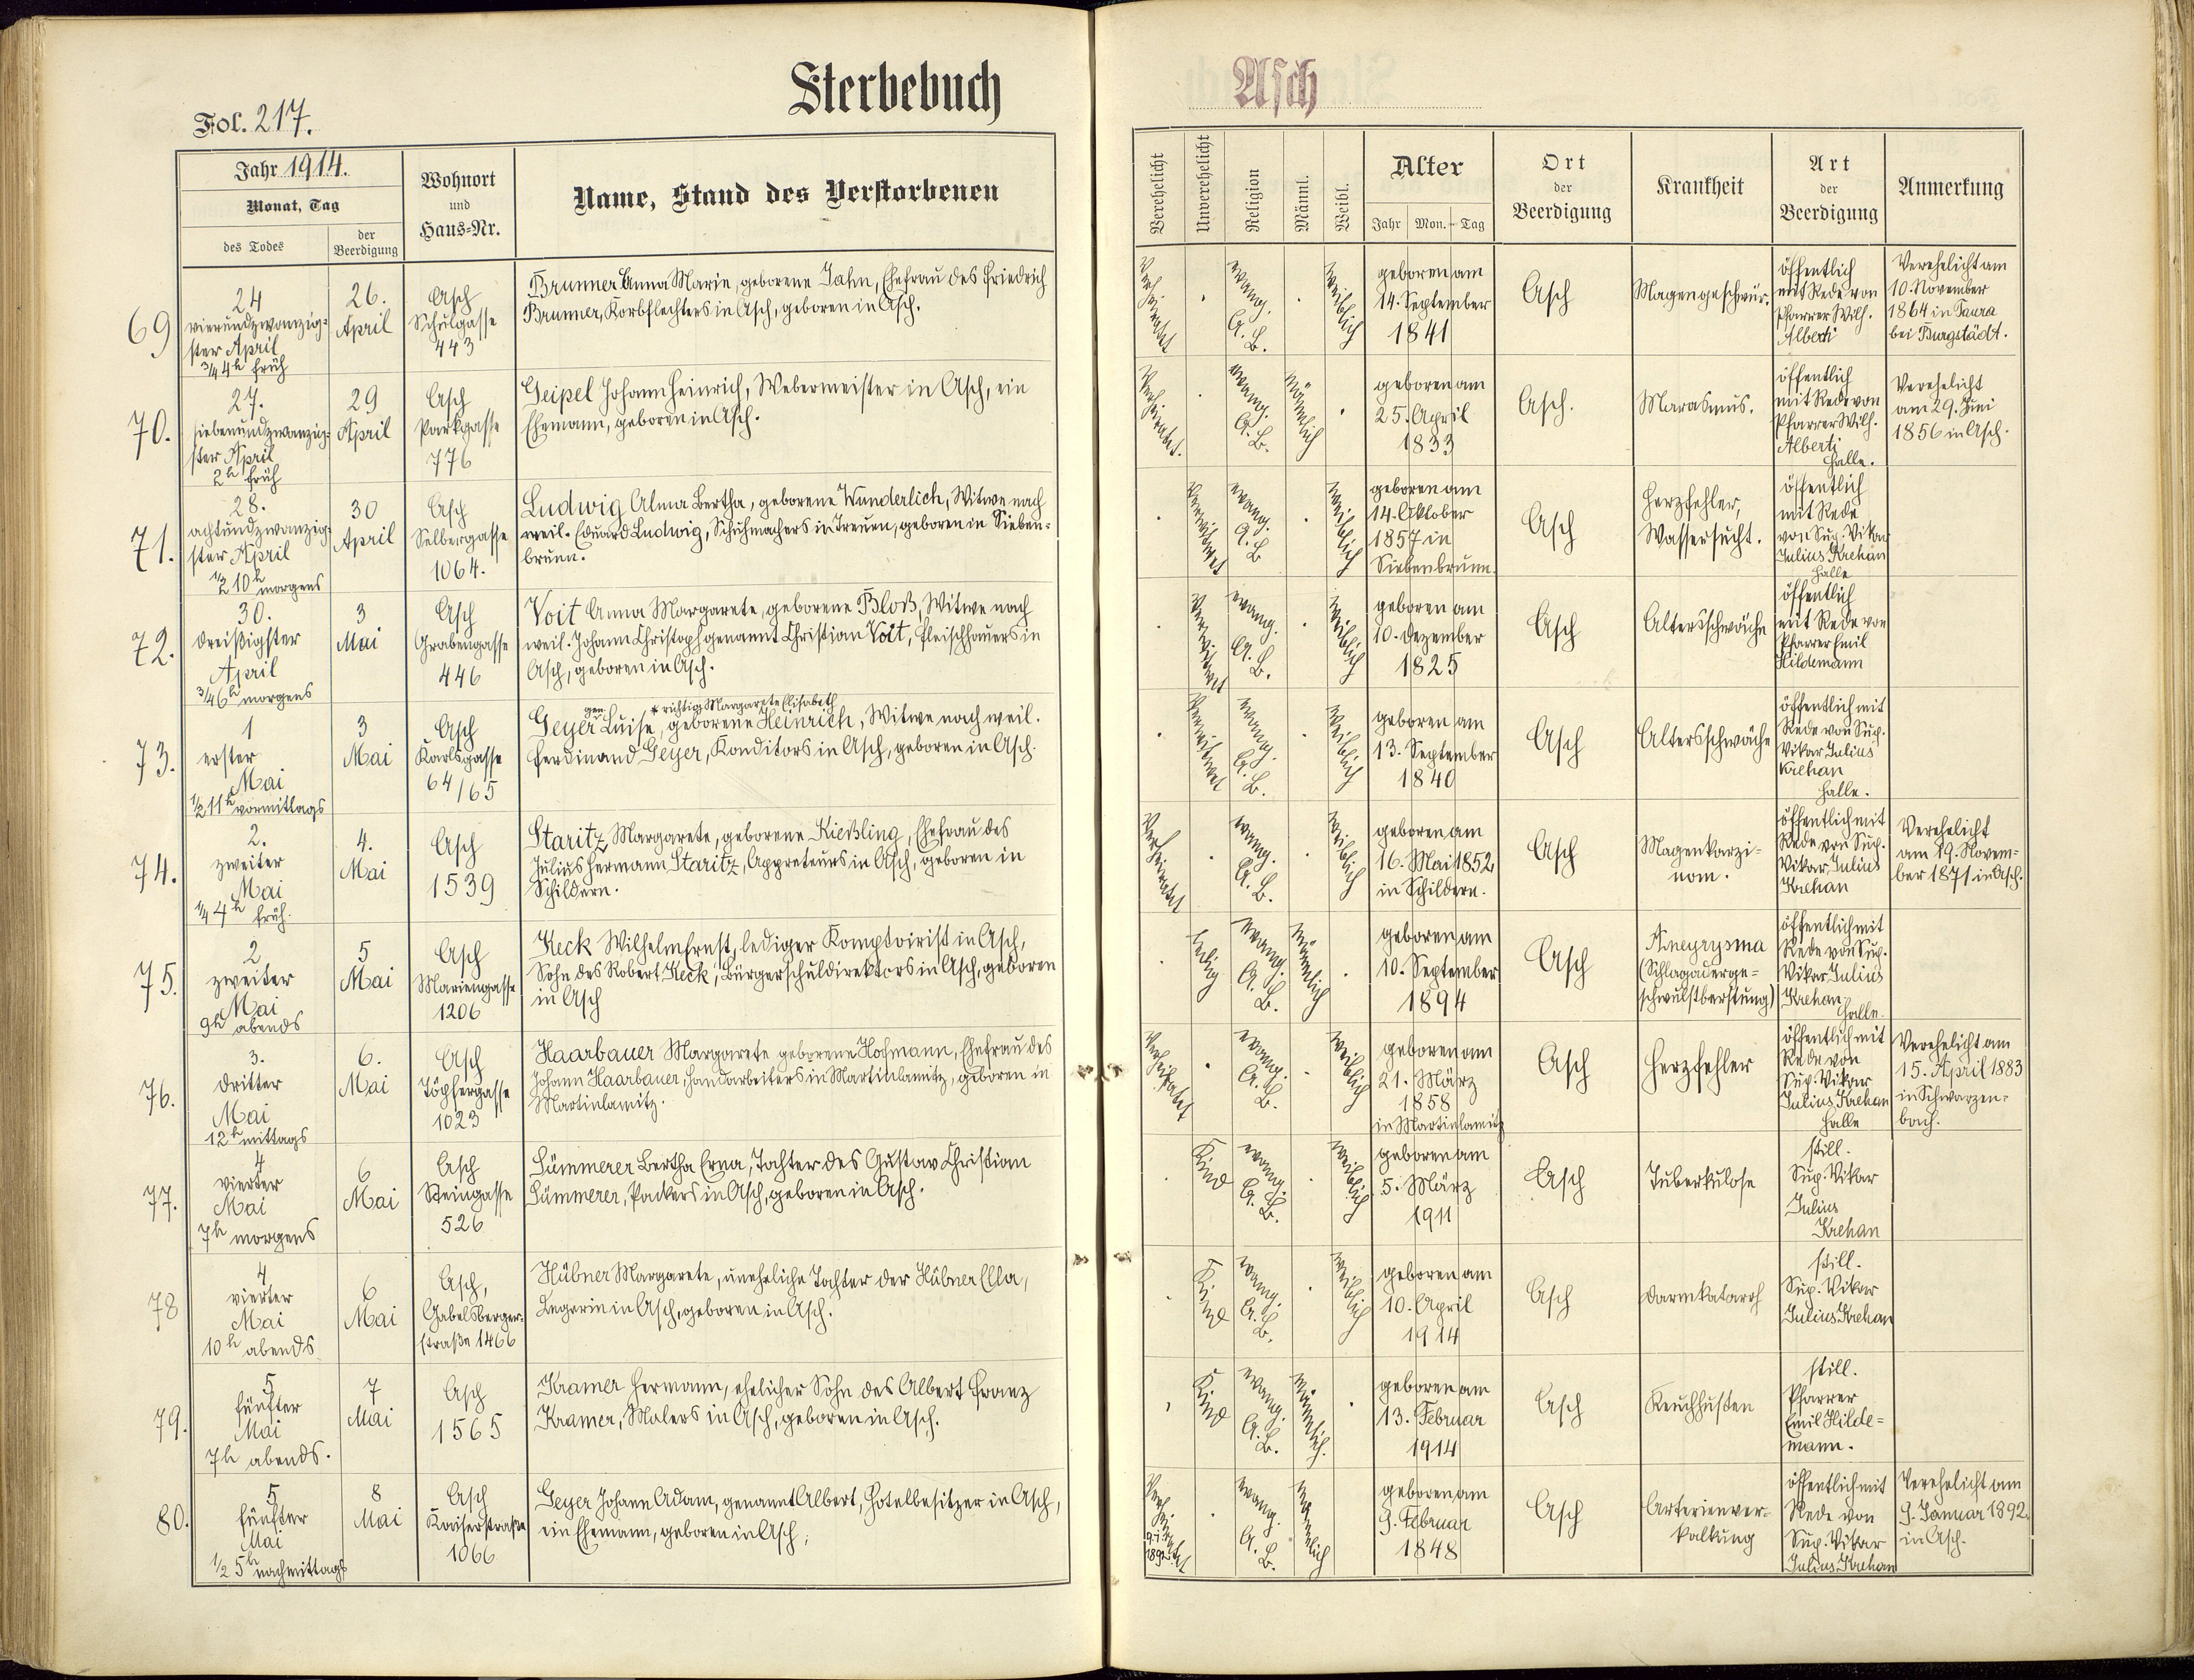 Sterbebuch
Asch
Fol. 217.
Jahr 1914.
Monat, Tag
des Todes
der Beerdigung
Wohnort
und
Haus-Nr.
Name, Stand des Verstorbenen
Verehelicht
Unverehelicht
Religion
Männl.
Weibl.
Alter
Jahr Mon. Tag
Ort
der
Beerdigung
Krankheit
Art
der
Beerdigung
Anmerkung
69
24
vierundzwanzig-
ster April
3/4 4h früh
26.
April
Asch
Schulgasse
443
Brunner Anna Marie, geborene Jahn, Ehefrau des Friedrich
Brunner, Korbflechters in Asch, geboren in Asch.
Verheiratet
.
evang.
A. B.
.
weiblich
geboren am
14. September
1841
Asch
Magengeschwür.
öffentlich
mit Rede von
Pfarrer Wilh.
Alberti
Verehelicht am
10. November
1864 in Taura
bei Burgstädt.
70.
27.
siebenundzwanzig-
ster April
2h früh
29
April
Asch
Parkgasse
776
Geipel Johann Heinrich, Webermeister in Asch, ein
Ehemann, geboren in Asch.
Verheiratet.
.
evang.
A. B.
Männlich
.
geboren am
25. April
1833
Asch.
Marasmus.
öffentlich
mit Rede von
Pfarrer Wilh.
Alberti
Halle.
Verehelicht
am 29. Juni
1856 in Asch.
71.
28.
achtundzwanzig-
ster April
1/2 10h morgens
30
April
Asch
Selbergasse
1064.
Ludwig Alma Bertha, geborene Wunderlich, Witwe nach
weil. Eduard Ludwig, Schuhmachers in Treuen, geboren in Sieben-
brunn.
.
Verwitwet
evang.
A. B
.
weiblich
geboren am
14. Oktober
1857 in
Siebenbrunn.
Asch
Herzfehler,
Wassersucht.
öffentlich
mit Rede
von Sup. Vikar
Julius Krehan
Halle
72.
30.
dreißigster
April
3/4 6h morgens
3
Mai
Asch
Grabengasse
446
Voit Anna Margarete, geborene Bloß, Witwe nach
weil. Johann Christoph genannt Christian Voit, Fleischhauers in
Asch, geboren in Asch.
.
Verwitwet
evang.
A. B.
.
weiblich
geboren am
10. Dezember
1825
Asch
Altersschwäche
öffentlich
mit Rede von
Pfarrer Emil
Hildemann
73.
1
erster
Mai
1/2 11h vormittags
3
Mai
Asch
Karlsgasse
64/65
gen. * richtig Margarete Elisabeth
Geyer Luise, geborene Heinrich, Witwe nach weil.
Ferdinand Geyer, Konditors in Asch, geboren in Asch.
.
Verwitwet
evang.
A. B.
.
weiblich
geboren am
13. September
1840
Asch
Altersschwäche
öffentlich mit
Rede von Sup.
Vikar Julius
Krehan
Halle.
74.
2.
zweiter
Mai
1/4 4h früh.
4.
Mai
Asch
1539
Staritz Margarete, geborene Kießling, Ehefrau des
Julius Hermann Staritz, Appreteurs in Asch, geboren in
Schildern.
Verheiratet
.
evang.
A. B.
.
weiblich
geboren am
16. Mai 1852
in Schildern.
Asch
Magenkarzi-
nom.
öffentlich mit
Rede von Sup.
Vikar Julius
Krehan
Verehelicht
am 19. Novem-
ber 1871 in Asch.
75.
2
zweiter
Mai
9h abends
5
Mai
Asch
Mariengasse
1206
Keck Wilhelm Ernst, lediger Komptoirist in Asch,
Sohn des Robert Keck, Bürgerschuldirektors in Asch, geboren
in Asch
.
ledig
evang.
A. B.
Männlich
.
geboren am
10. September
1894
Asch
Aneyrysma
(Schlagaderge-
schwulstberstung)
öffentlich mit
Rede von Sup.
Vikar Julius
Krehan
Halle.
76.
3.
dritter
Mai
12h mittags
6.
Mai
Asch
Töpfergasse
1023
Haarbauer Margarete geborene Hofmann, Ehefrau des
Johann Haarbauer, Handarbeiters in Martinlamitz, geboren in
Martinlamitz.
Verheiratet
.
evang.
A. B.
.
weiblich
geboren am
21. März
1858
in Martinlamitz
Asch
Herzfehler
öffentlich mit
Rede von
Sup. Vikar
Julius Krehan
Halle
Verehelicht am
15. April 1883
in Schwarzen-
bach.
77.
4
vierter
Mai
7h morgens
6
Mai
Asch
Steingasse
526
Sümmerer Bertha Erna, Tochter des Gustav Christian
Sümmerer, Packers in Asch, geboren in Asch.
.
Kind
evang.
A. B.
.
weiblich
geboren am
5. März
1911
Asch
Tuberkulose
still.
Sup. Vikar
Julius
Krehan
78
4
vierter
Mai
10h abends
6
Mai
Asch,
Gabelsberger-
straße 1466
Hübner Margarete, uneheliche Tochter der Hübner Ella,
Legerin in Asch, geboren in Asch.
.
Kind
evang.
A. B.
.
weiblich
geboren am
10. April
1914
Asch
Darmkatarrh
still.
Sup. Vikar
Julius Krehan
79.
5
fünfter
Mai
7h abends.
7
Mai
Asch
1565
Kramer Hermann, ehelicher Sohn des Albert Franz
Kramer, Malers in Asch, geboren in Asch.
.
Kind
evang.
A. B.
Männlich.
.
geboren am
13. Februar
1914
Asch
Keuchhusten
still.
Pfarrer
Emil Hilde-
mann.
80.
5
fünfter
Mai
1/2 5h nachmittags
8
Mai
Asch
Kaiserstraße
1066
Geyer Johann Adam, genannt Albert, Hotelbesitzer in Asch,
ein Ehemann, geboren in Asch;
Verheiratet
9.I.
1892.
.
evang.
A. B.
Männlich
geboren am
9. Februar
1848
Asch
Arterienver-
kalkung
öffentlich mit
Rede von
Sup. Vikar
Julius Krehan
Verehelicht am
9. Januar 1892
in Asch.